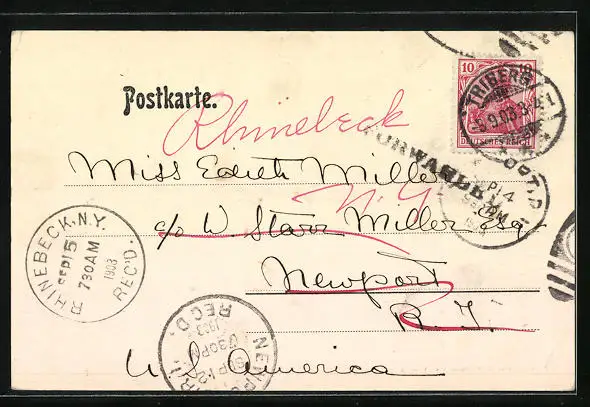 10 10
DEUTSCHES REICH
TRIBERG
5.9.03.3-4.
Postkarte.
Rhinebeck
N.Y.
FORWARDED
Miss Edith Miller
c/o W Starr Miller Esq
Newport
R. I.
U S America
RHINEBECK, N.Y.
SEP 15
730AM
1903
REC'D.
REC'D.
1903
730PM
SEP 12
NEWPORT R.I.